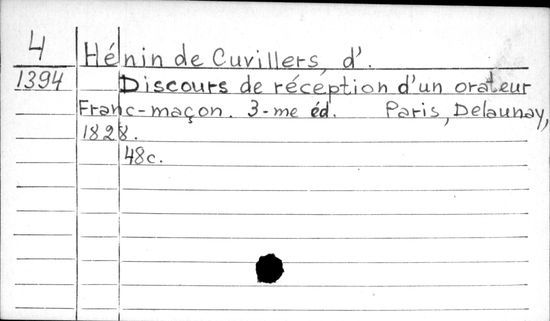 4 Hénin de Cuvillers, d'.
1394 Discours de réception d'un orateur
Franc-maçon. 3-me éd. Paris, Delaunay,
1828.
48c.